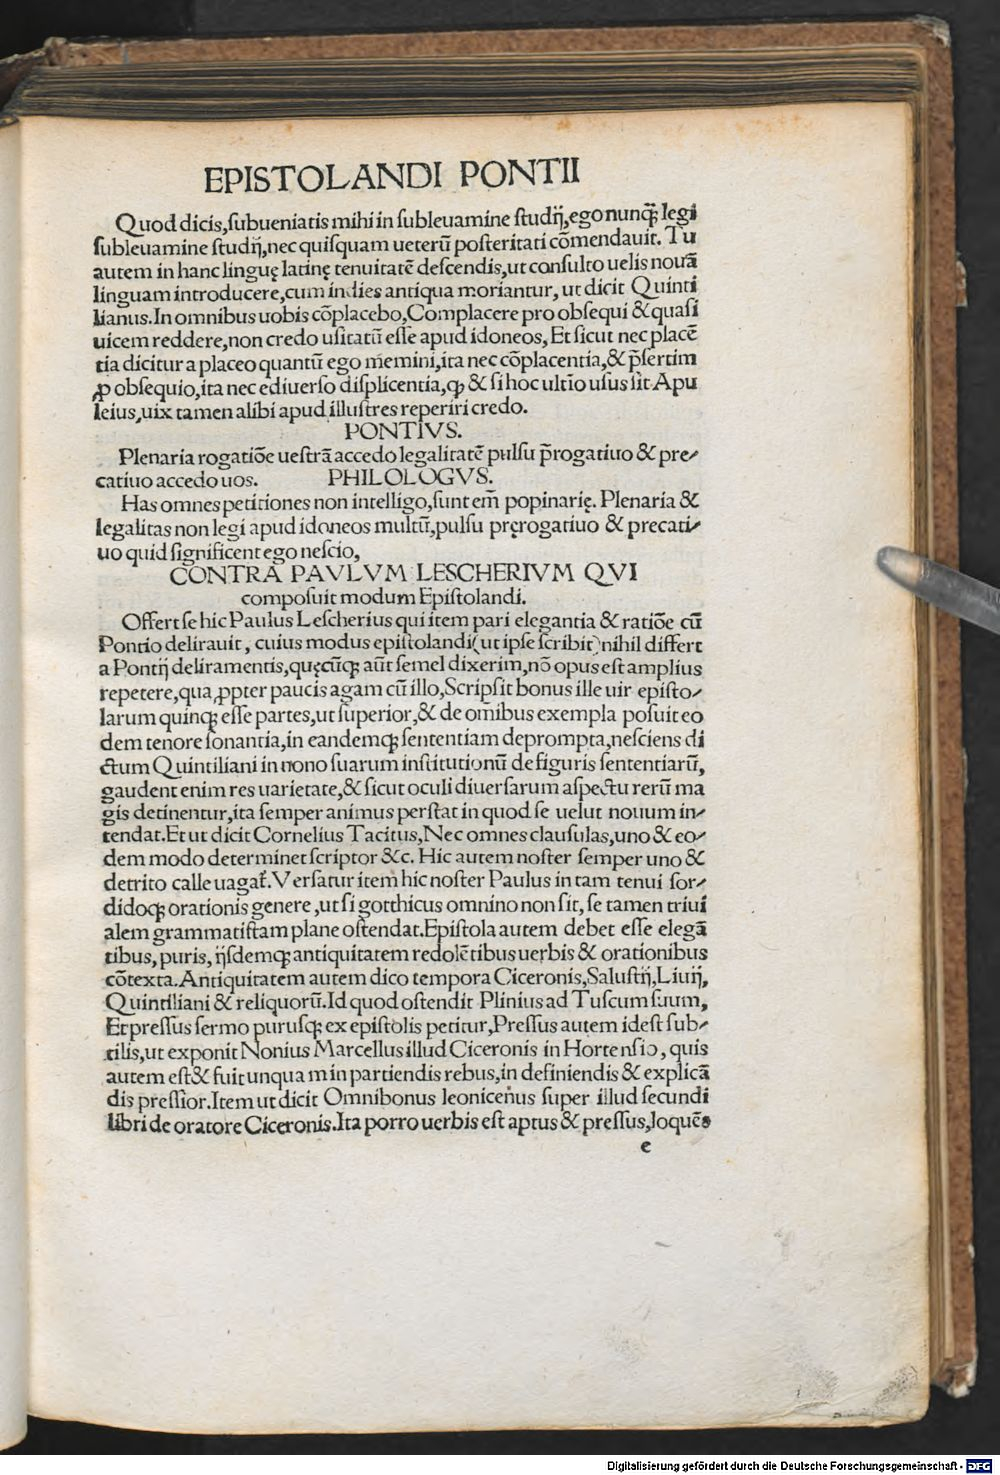 EPISTOLANDI PONTII
Quod dicis,subueniatis mihi in subleuamine studij,ego nunꝙ̃ legi
subleuamine studij,nec quisquam ueterũ posteritati cõmendauit. Tu
autem in hanc linguę latinę tenuitatẽ descendis,ut consulto uelis nouã
linguam introducere,cum indies antiqua moriantur, ut dicit Quinti
lianus.In omnibus uobis cõplacebo,Complacere pro obsequi & quasi
uicem reddere,non credo usitatũ esse apud idoneos, Et sicut nec placẽ
tia dicitur a placeo quantũ ego memini,ita nec cõplacentia,& p̃sertim
ꝓ obsequio,ita nec ediuerso displicentia,ꝙ & si hoc ultĩo usus sit Apu
leius,uix tamen alibi apud illustres reperiri credo.
PONTIVS.
Plenaria rogatiõe uestrã accedo legalitatẽ pulsu p̃rogatiuo & pre-
catiuo accedo uos. PHILOLOGVS.
Has omnes petitiones non intelligo,sunt em̃ popinarię. Plenaria &
legalitas non legi apud idoneos multũ,pulsu pręrogatiuo & precati-
uo quid significent ego nescio,
CONTRA PAVLVM LESCHERIVM QVI
composuit modum Epistolandi.
Offert se hic Paulus Lescherius qui item pari elegantia & ratiõe cũ
Pontio delirauit, cuius modus epistolandi(ut ipse scribit)nihil differt
a Pontij deliramentis,quęcũꝗ aũt semel dixerim,nõ opus est amplius
repetere,qua ꝓpter paucis agam cũ illo,Scripsit bonus ille uir episto-
larum quinꝗ esse partes,ut superior,& de om̃ibus exempla posuit eo
dem tenore sonantia,in eandemꝗ sententiam deprompta,nesciens di
ctum Quintiliani in nono suarum institutionũ de figuris sententiarũ,
gaudent enim res uarietate,& sicut oculi diuersarum aspectu rerũ ma
gis detinentur,ita semper animus perstat in quod se uelut nouum in-
tendat.Et ut dicit Cornelius Tacitus,Nec omnes clausulas,uno & eo-
dem modo determinet scriptor &c. Hic autem noster semper uno &
detrito calle uagat̃.Versatur item hic noster Paulus in tam tenui sor-
didoꝗ orationis genere,ut si gotthicus omnino non sit, se tamen triui
alem grammatistam plane ostendat.Epistola autem debet esse elegã
tibus, puris, ijsdemꝗ antiquitatem redolẽtibus uerbis & orationibus
cõtexta.Antiquitatem autem dico tempora Ciceronis,Salustij,Liuij,
Quintiliani & reliquorũ.Id quod ostendit Plinius ad Tuscum suum,
Et pressus sermo purusꝗ ex epistolis petitur,Pressus autem idest sub-
tilis,ut exponit Nonius Marcellus illud Ciceronis in Hortensio, quis
autem est & fuit unquam in partiendis rebus,in definiendis & explicã
dis pressior.Item ut dicit Omnibonus leonicenus super illud secundi
libri de oratore Ciceronis.Ita porro uerbis est aptus & pressus,loquẽs
e
Digitalisierung gefördert durch die Deutsche Forschungsgemeinschaft - DFG